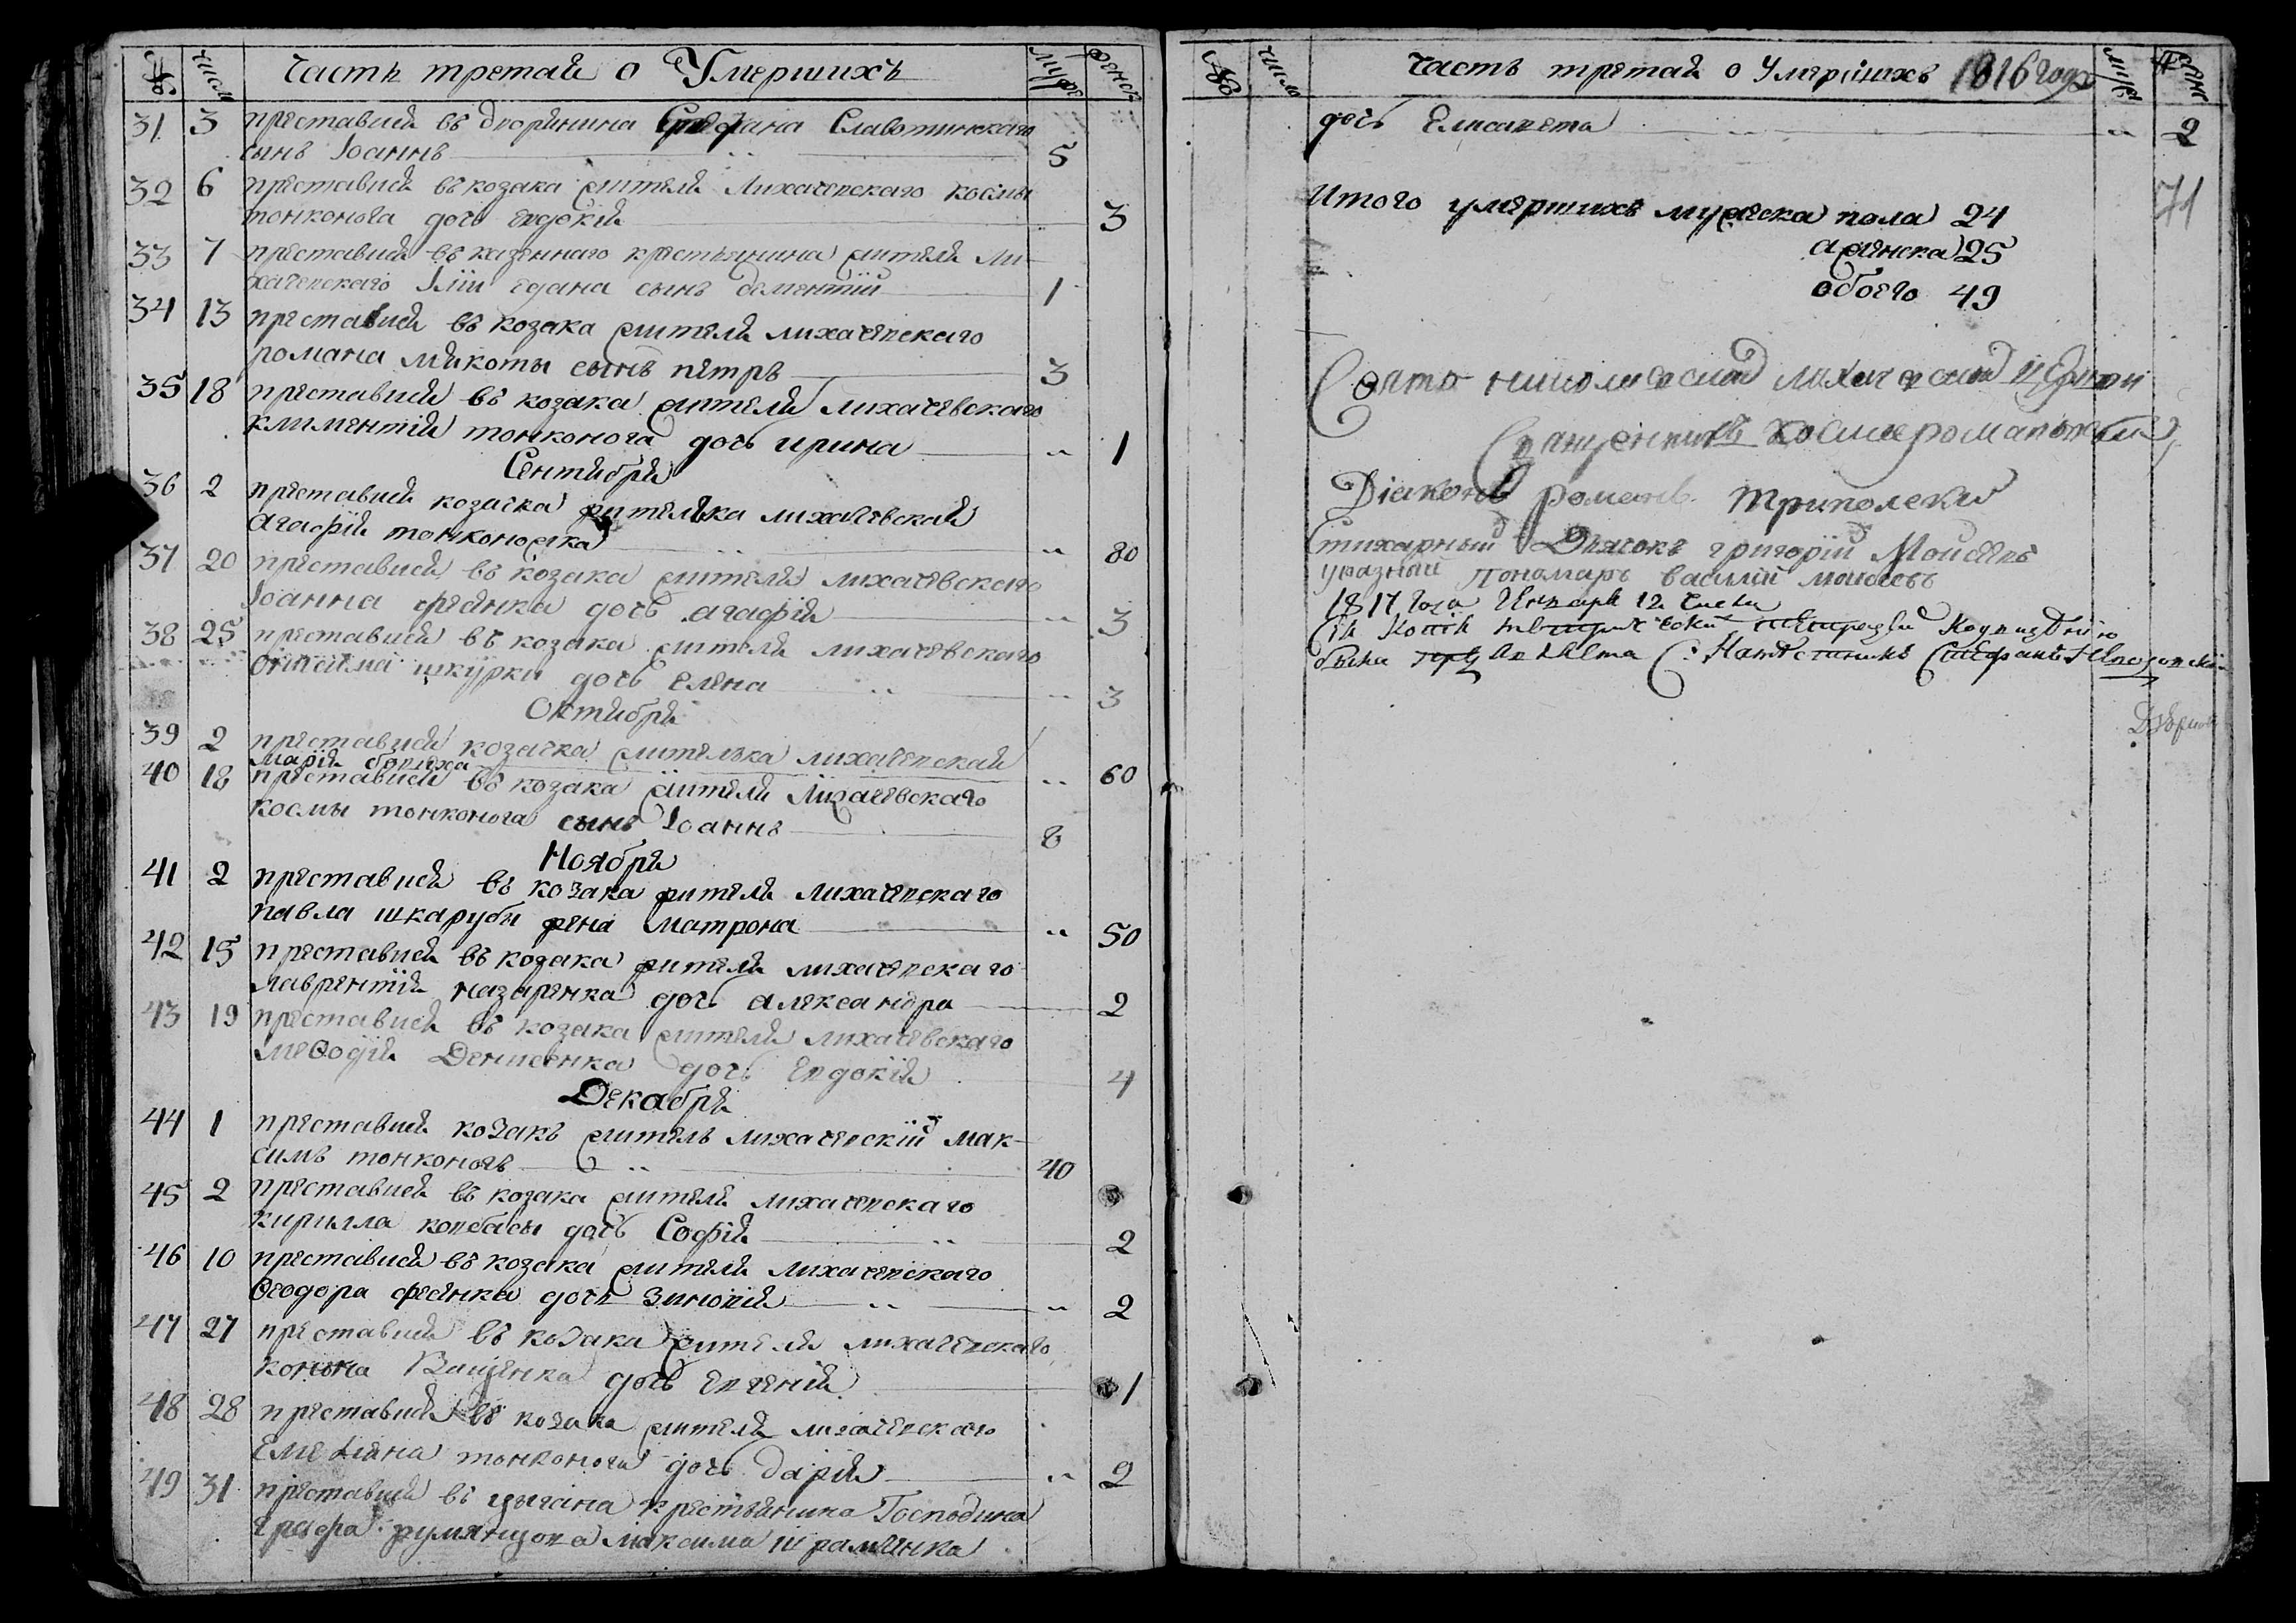 № число Часть третая о Умершихъ мужс женск
31 3 преставися въ дворянина Стефана Славотинскаго
сынъ Іоаннъ 5
32 6 преставися въ козака жителя Лихачевскаго Космы
тонконога дочь евдокія 3
33 7 преставися въ казеннаго крестьянина жителя Ли-
хачевскаго сынъ дементій 1
34 13 преставися въ козака жителя лихачевскаго
романа микоты сынъ петръ 3
35 18 преставися въ козака жителя лихачевскаго
климентія тонконога дочь ирина „ 1
Сентября
36 2 преставися козачка жителька лихачевская
Агафія тонконожка „ 80
37 20 преставися въ козака жителя лихачевскаго
Іоанна фесенка дочь агафія „ 3
38 25 преставися въ козака жителя лихачевскаго
шкурки дочь елена „ 3
Октября
39 2 преставися козачка жителька лихачевская
Марія „ 60
40 18 преставися въ козака жителя Лихачевскаго
космы тонконога сынъ Іоаннъ 8
Ноября
41 2 преставися въ козака жителя лихачевскаго
павла шкарубы жена Матрона „ 50
42 15 преставися въ козака жителя лихачевскаго
лаврентія назаренка дочь александра 2
43 19 преставися въ козака жителя лихачевскаго
меѳодія Денисенка дочь Евдокія 4
Декабря
44 1 преставися козакъ житель лихачевскій мак-
симъ тонконогъ 40
45 2 преставися въ козака жителя лихачевскаго
кирилла ковбасы дочь Софія 2
46 10 преставися въ козака жителя лихачевскаго
Ѳеодора фесенка дочь Зиновія „ 2
47 27 преставися въ козака жителя лихачевскаго
конона Ващенка дочь евгенія 1
48 28 преставися въ козака жителя лихачевскаго
Емеліяна тонконога дочь дарія „ 2
49 31 преставися въ цыгана крестьянина Господина
графа румянцова максима
№ число Часть третая о Умершихъ 1816 года мужс женс
дочь Елисавета „ 2
71
Итого умершихъ мужеска пола 24
а женска 25
обоего 49
Свято николаевской лихачевской церкви
Священникъ Косма романовскій
Діаконъ романъ Триполскій
Стихарный Дьячокъ григорій Моисеевъ
указный Пономарь василій моисеевъ
1817 года Генваря 12 числа